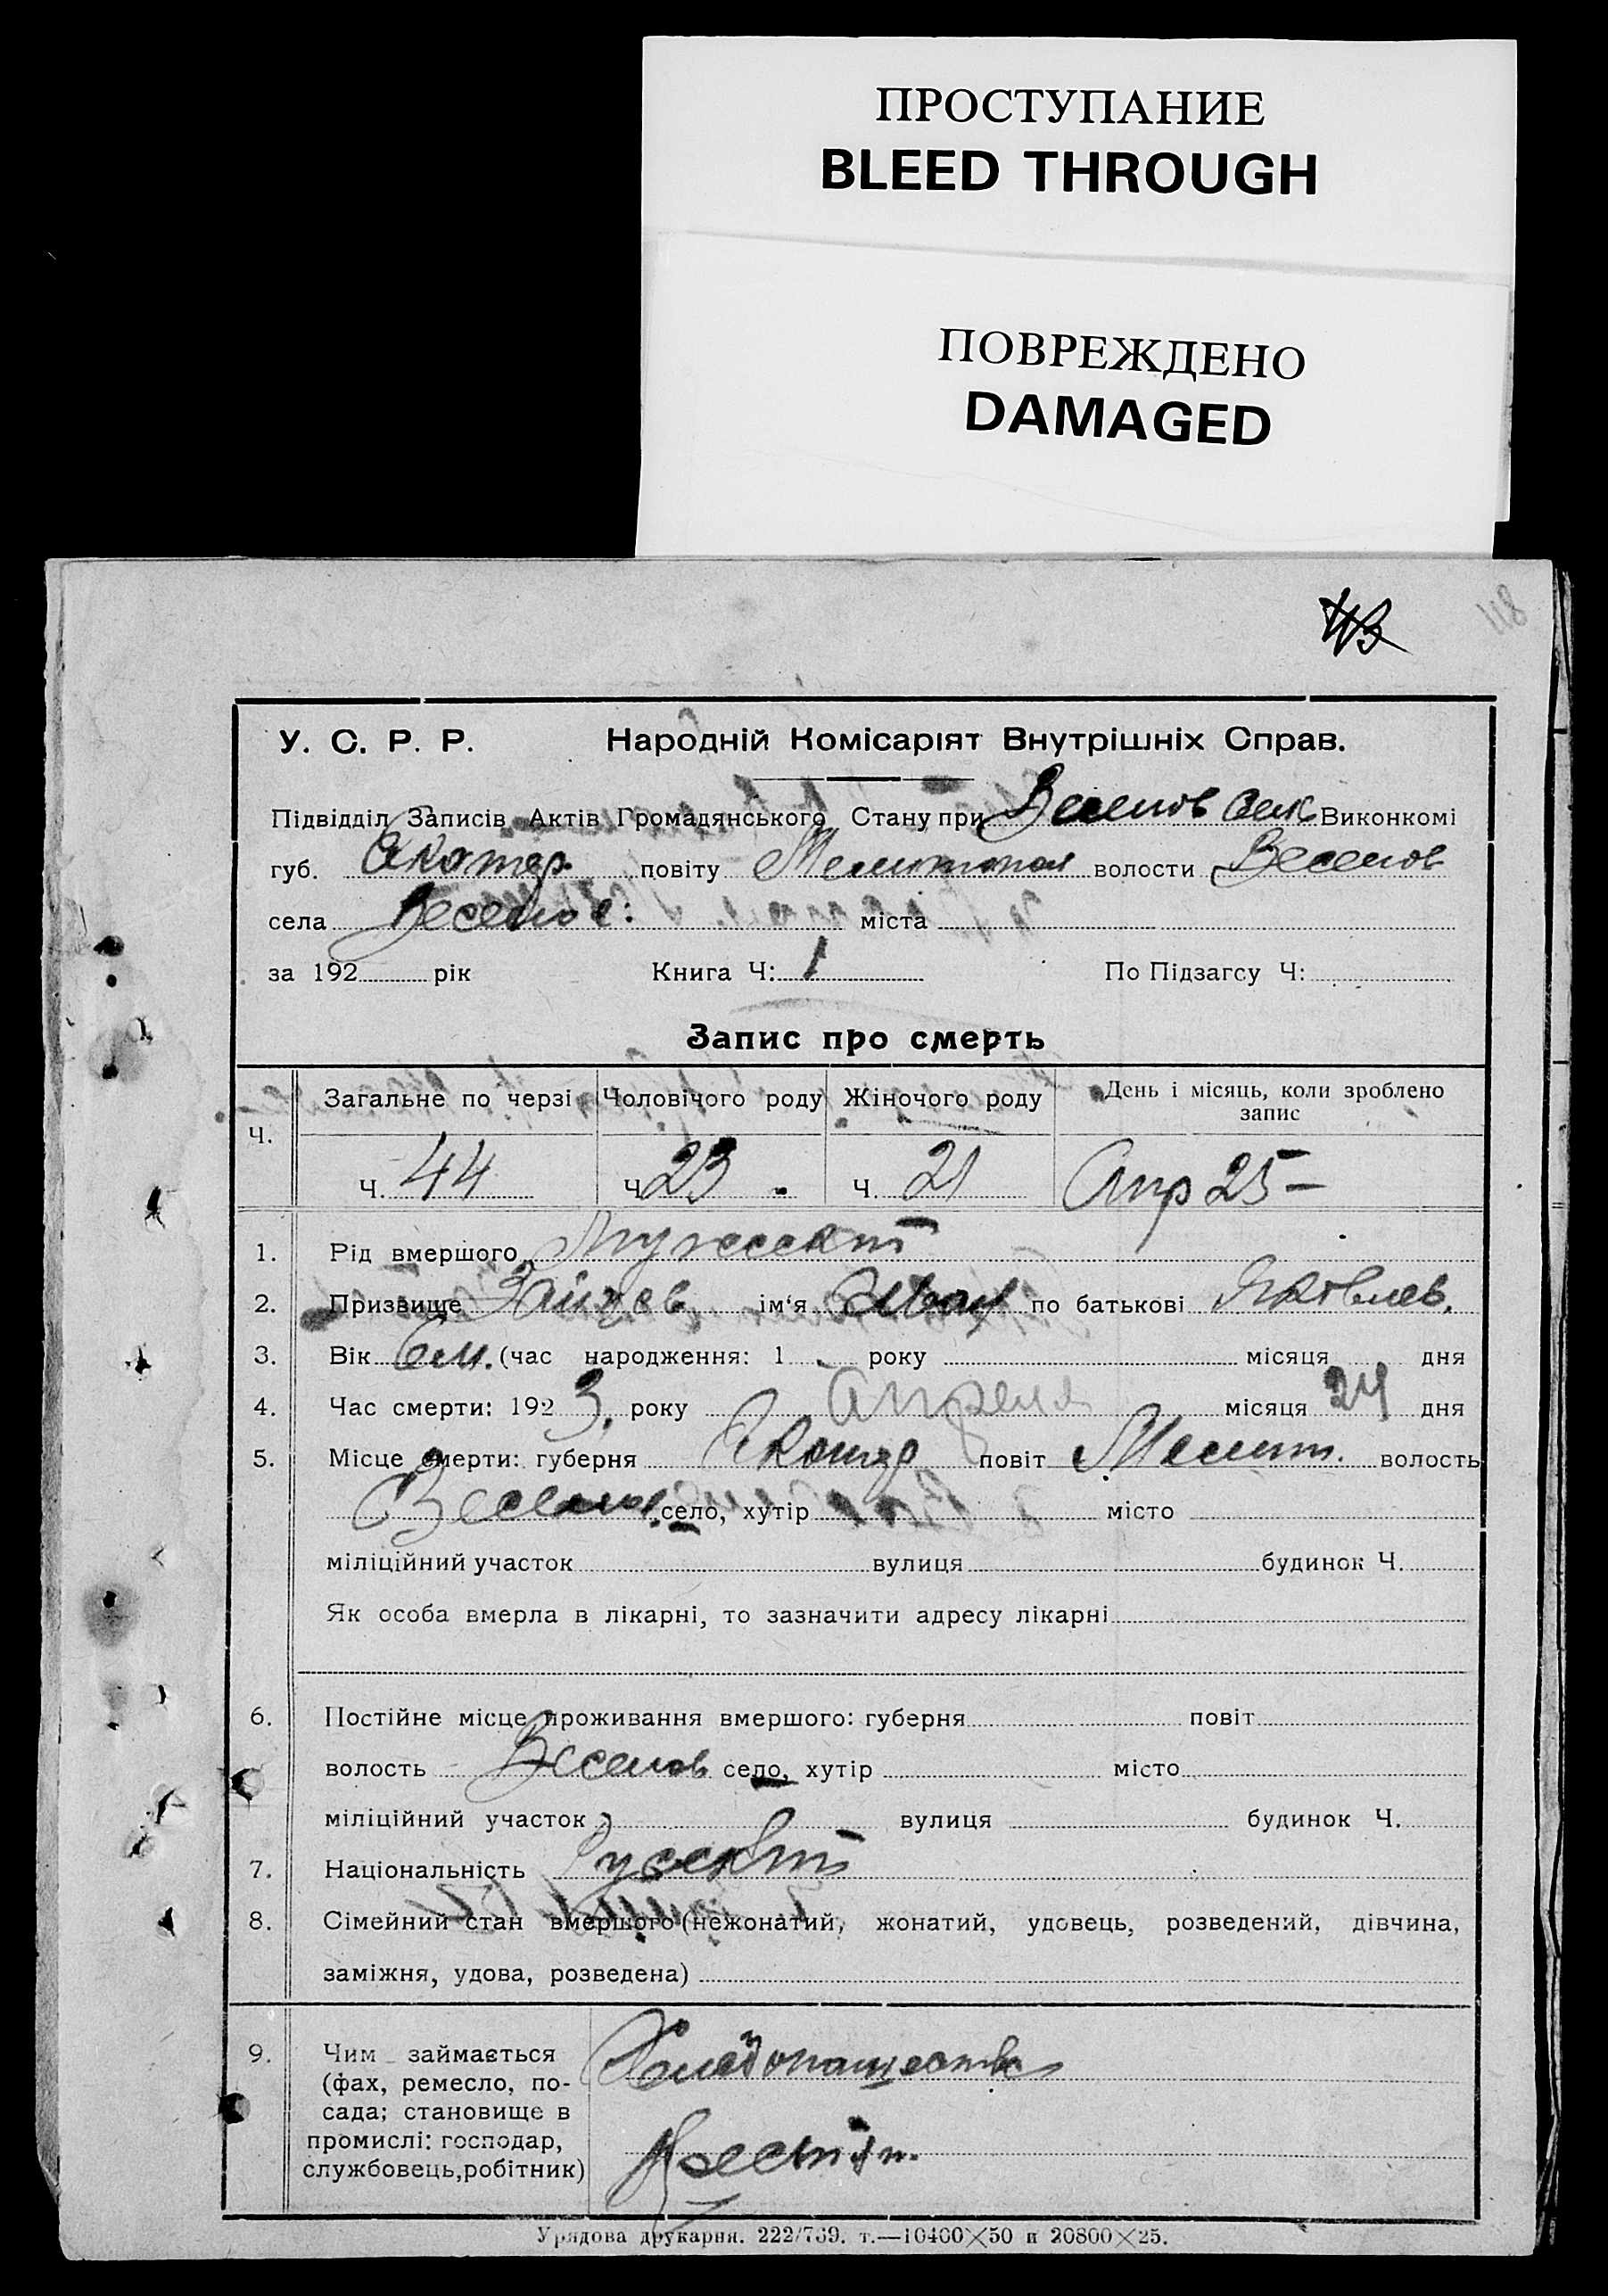 ПРОСТУПАНИЕ
BLEED THROUGH
ПОВРЕЖДЕНО
DAMAGED
118
У. С. Р. Р. Народній Комісаріят Внутрішніх Справ.
Підвідділ Записів Актів Громадянського Стану при Веселов Виконкомі
губ. Екатер. повіту Мелитопол волости Веселов
села Веселое: міста
за 192 рік Книга Ч: 1 По Підзагсу Ч:
Запис про смерть
Ч. Загальне по черзі Чоловічого роду Жіночого роду День і місяць, коли зроблено запис
Ч. 44 Ч. 23 Ч. 21 Апр 25 –
1. Рід вмершого Мужеский
2. Призвище Зайцев ім'я Иван по батькові Яковлев.
3. Вік 6 м. (час народження: 1 року місяця дня
4. Час смерти: 1923. року Апреля місяця 24 дня
5. Місце смерти: губерня Екатер повіт Мелит. волость
Веселов. село, хутір місто
міліційний участок вулиця будинок Ч.
Як особа вмерла в лікарні, то зазначити адресу лікарні
6. Постійне місце проживання вмершого: губерня повіт
волость Веселов село, хутір місто
міліційний участок вулиця будинок Ч.
7. Національність Русский
8. Сімейний стан вмершого (нежонатий, жонатий, удовець, розведений, дівчина,
заміжня, удова, розведена)
9. Чим займається Хлебопашество
(фах, ремесло, по-
сада; становище в
промислі: господар, Крестян.
службовець, робітник)
Урядова друкарня. 222/739. т.—10400×50 и 20800×25.